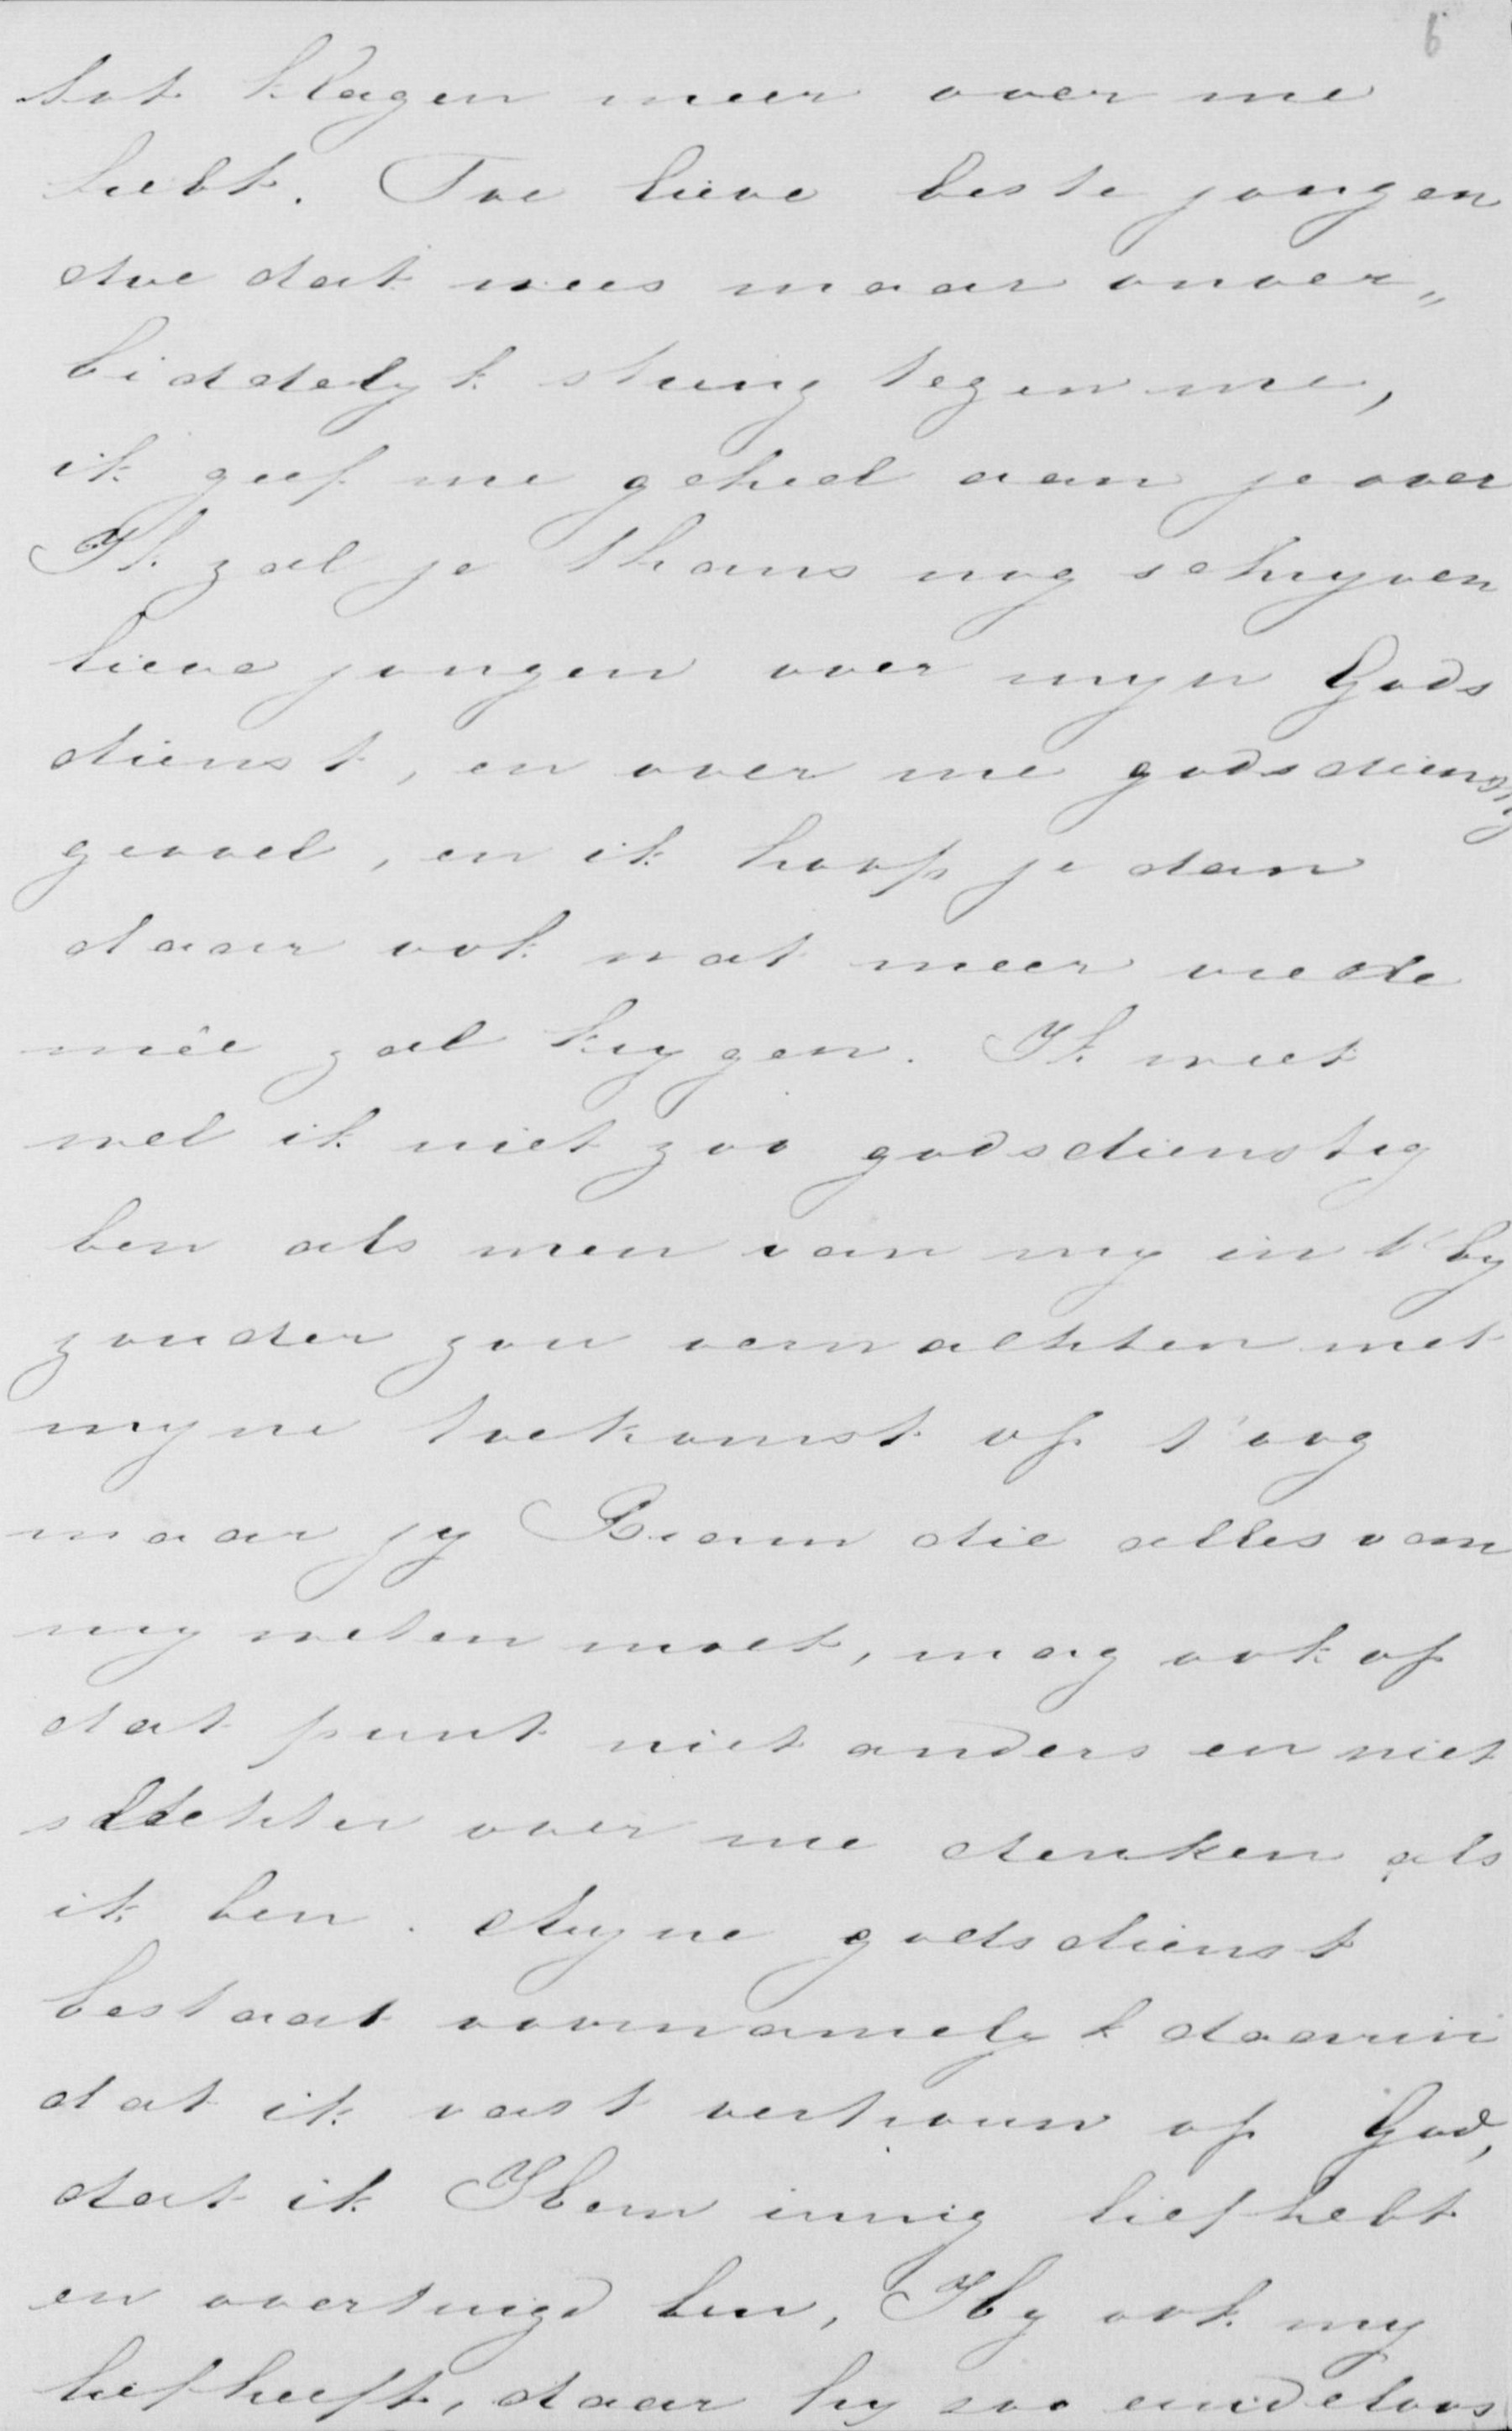 6
tot klagen meer over me
hebt. Toe lieve beste jongen
doe dat wees maar onver„
biddelyk streng tegen me,
ik geef me geheel aan je over
Ik zal je thans nog schryven
lieve jongen over myn Gods
dienst, en over me godsdienstig
gevoel, en ik hoop je dan
daar ook wat meer vrede
meê zal krygen. Ik weet
wel ik niet zoo godsdienstig
ben als men van my in 't by
zonder zou verwachten met
myne toekomst op 't oog
maar jy Bram die alles van
my weten moet, mag ook op
dat punt niet anders en niet
slechter over me denken als
ik ben. Myne godsdienst
bestaat voornamelyk daarin
dat ik vast vertrouw op God,
dat ik Hem innig liefhebt
en overtuigd ben, Hy ook my
liefheeft, daar hy zoo eindeloos